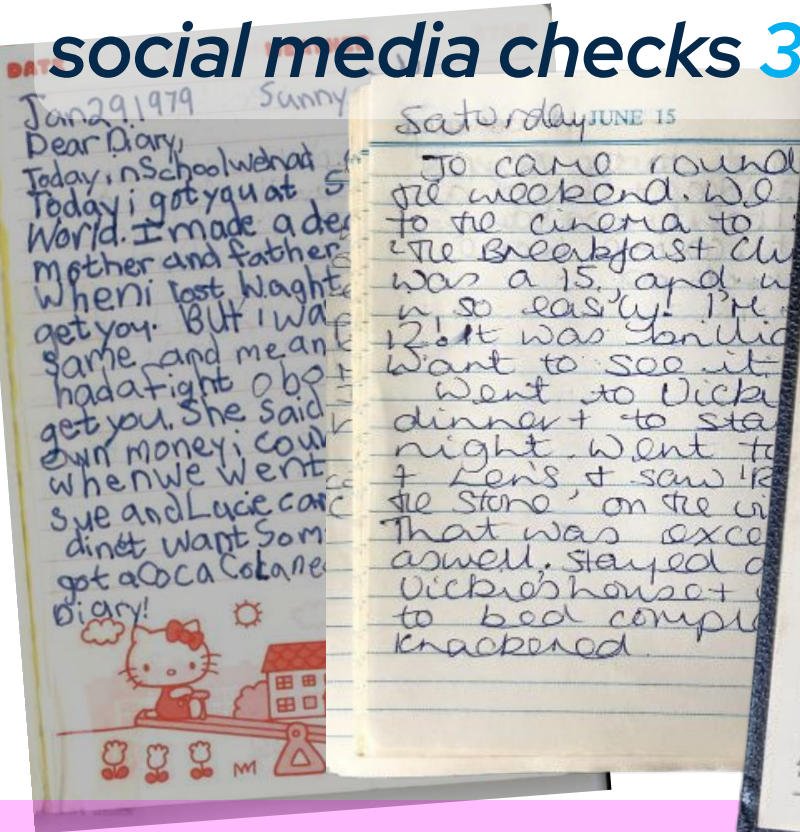 social media checks 3
DATE
Jan 29 1979 Sunny
Dear Diary,
Today in School we had
Today i got you at S
World. I made a de
mother and father
When i lost
get you. But I wa
Same and mean
had a fight obo
get you. She said
own money i coul
when we went
Sue and Lucie can
dinet want Som
got a Coca Cola ne
Diary!
Saturday JUNE 15
Jo came round
the weekend. We
to the cinema to
'The Breakfast Clu
was a 15, and w
in so easily! I'm
12! It was brillia
want to see it
Went to Vicki
dinner + to sta
night. Went to
+ Len's + saw 'R
the Stone' on the vi
That was exce
aswell. Stayed a
Vickie's house +
to bed comple
knackered.